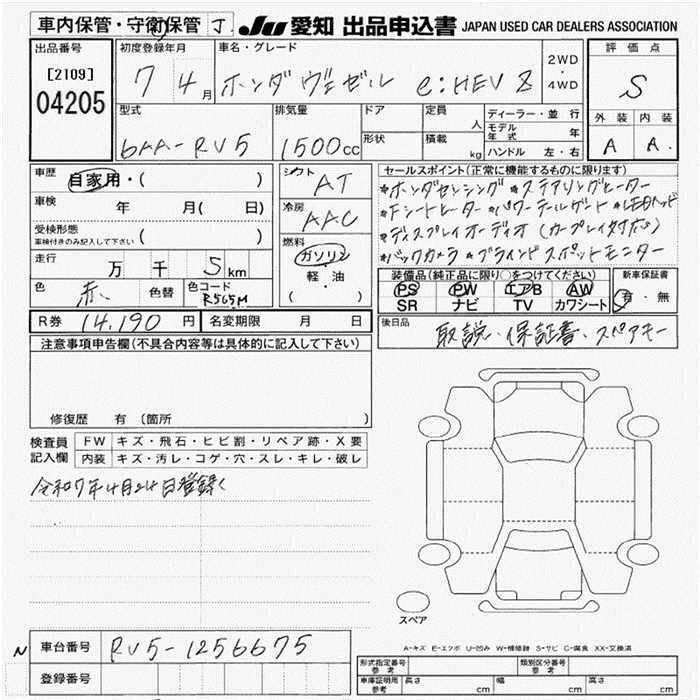 車内保管・守衛保管 J. JU 愛知 出品申込書 JAPAN USED CAR DEALERS ASSOCIATION
出品番号 初度登録年月 車名・グレード 評価点
[2109] 7 4月 ホンダ ヴェゼル e:HEV Z 2WD・4WD S
04205
型式 排気量 ドア 定員 人 ディーラー・並行 外装 内装
6AA-RV5 1500cc 形状 積載 kg モデル年式 年 A A.
ハンドル 左・右
車歴 自家用・( ) シフト AT セールスポイント(正常に機能するものに限ります)
車検 年 月( 日) 冷房 AAC *ホンダセンシング *ステアリングヒーター
*Fシートヒーター *パワーテールゲート *LEDヘッド
受検形態 車検付きのみ記入して下さい ( ) 燃料 ガソリン 軽・油 ( )
*ディスプレイオーディオ(カープレイ対応)
*バックカメラ *ブラインドスポットモニター
走行 万 千 5km
色 赤. 色替 色コード R565M
装備品(純正品に限り○をつけてください) 新車保証書
PS PW エアB AW 有・無
SR ナビ TV カワシート
R券 14,190円 名変期限 月 日 後日品 取説、保証書、スペアキー
注意事項申告欄(不具合内容等は具体的に記入して下さい)
修復歴 有 (箇所 )
検査員記入欄 FW キズ・飛石・ヒビ割・リペア跡・X要
内装 キズ・汚レ・コゲ・穴・スレ・キレ・破レ
令和7年4月24日登録
スペア
A-キズ E-エクボ U-凹み W-補修跡 S-サビ C-腐食 XX-交換済
N 車台番号 RV5-1256675
登録番号
形式指定番号 参考 類別区分番号 参考
車庫証明用 参考 長さ cm 幅 cm 高さ cm